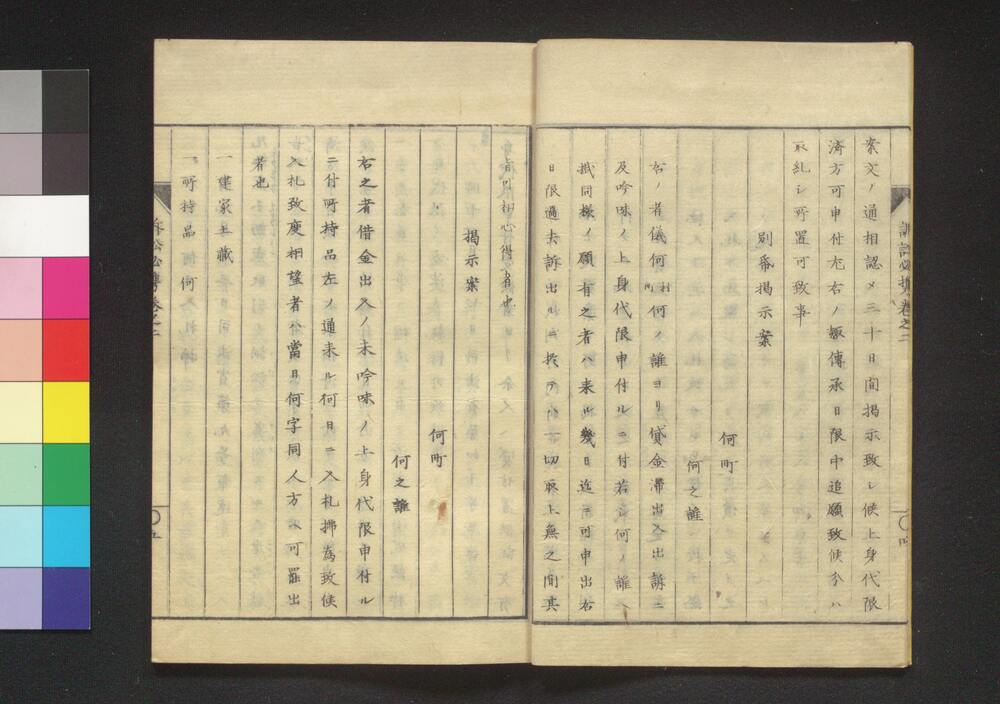 案文ノ通相認メ三十日間掲示致シ候上身代限
済方可申付尤右ノ趣傳承日限中追願致候分ハ
取糺シ所置可致事
別番掲示案
何町
何之誰
右ノ者儀何村町何ノ誰ヨリ貸金滞出入出訴ニ
及吟味ノ上身代限申付ルニ付若又何ノ誰ヘ
抵同様ノ願有之者ハ来ル幾日迄ニ可申出右
日限過去訴出ルニ於テハ一切取上無之間其
旨可相心得者也
掲示案
何町
何之誰
右之者借金出入ノ末吟味ノ上身代限申付ル
ニ付所持品左ノ通来ル何日ニ入札拂為致候
入札致度相望者ハ當日何字同人方ヘ可罷出
者也
一建家土藏
一所持品何
訴訟必携巻之二